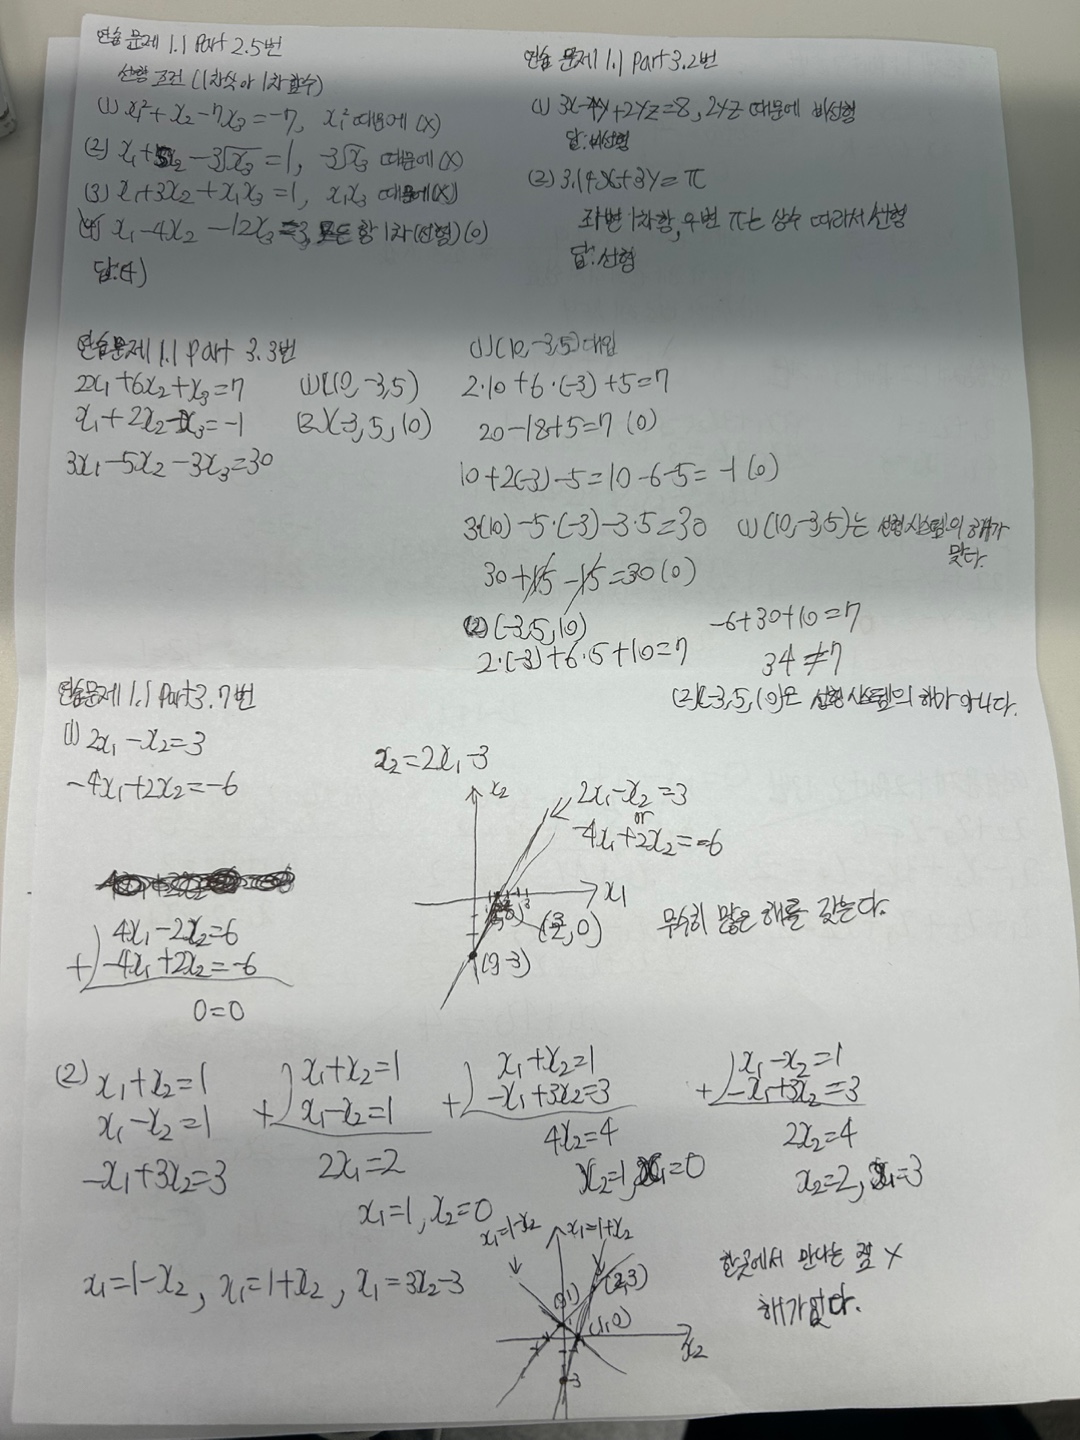 연습 문제 1.1 Part 2.5번
선형 조건 (1차식 or 1차 함수)
(1) x₁²+x₂-7x₃=-7, x₁² 때문에 (X)
(2) x₁+5x₂-3√x₃=1, -3√x₃ 때문에 (X)
(3) x₁+3x₂+x₁x₃=1, x₁x₃ 때문에 (X)
(4) x₁-4x₂-12x₃=3, 모든 항 1차 (선형) (O)
답:(4)
연습 문제 1.1 Part 3.2번
(1) 3x-4y+2yz=8, 2yz 때문에 비선형
답:비선형
(2) 3.14x+3y=π
좌변 1차항, 우변 π는 상수 따라서 선형
답:선형
연습문제 1.1 Part 3.3번
2x₁+6x₂+x₃=7 (1)(10,-3,5)
x₁+2x₂-x₃=-1 (2)(-3,5,10)
3x₁-5x₂-3x₃=30
(1)(10,-3,5)대입
2·10+6·(-3)+5=7
20-18+5=7 (0)
10+2(-3)-5=10-6-5=-1 (0)
3(10)-5·(-3)-3·5=30 (1)(10,-3,5)는 선형시스템의 해가
맞다.
30+15-15=30(0)
(2)(-3,5,10)
2·(-3)+6·5+10=7
-6+30+10=7
34≠7
(2)(-3,5,10)은 선형 시스템의 해가 아니다.
연습문제 1.1 Part 3.7번
(1) 2x₁-x₂=3
-4x₁+2x₂=-6
4x₁-2x₂=6
+)-4x₁+2x₂=-6
0=0
x₂=2x₁-3
x₂
2x₁-x₂=3
or
-4x₁+2x₂=-6
x₁
(3/2,0)
(0,-3)
무수히 많은 해를 갖는다.
(2) x₁+x₂=1
x₁-x₂=1
-x₁+3x₂=3
x₁+x₂=1
+) x₁-x₂=1
2x₁=2
x₁=1, x₂=0
x₁+x₂=1
+) -x₁+3x₂=3
4x₂=4
x₂=1, x₁=0
x₁-x₂=1
+) -x₁+3x₂=3
2x₂=4
x₂=2, x₁=3
x₁=1-x₂, x₁=1+x₂, x₁=3x₂-3
x₁=1-x₂
x₁=1+x₂
(2,3)
(0,1)
(1,0)
x₂
-3
한곳에서 만나는 점 X
해가 없다.